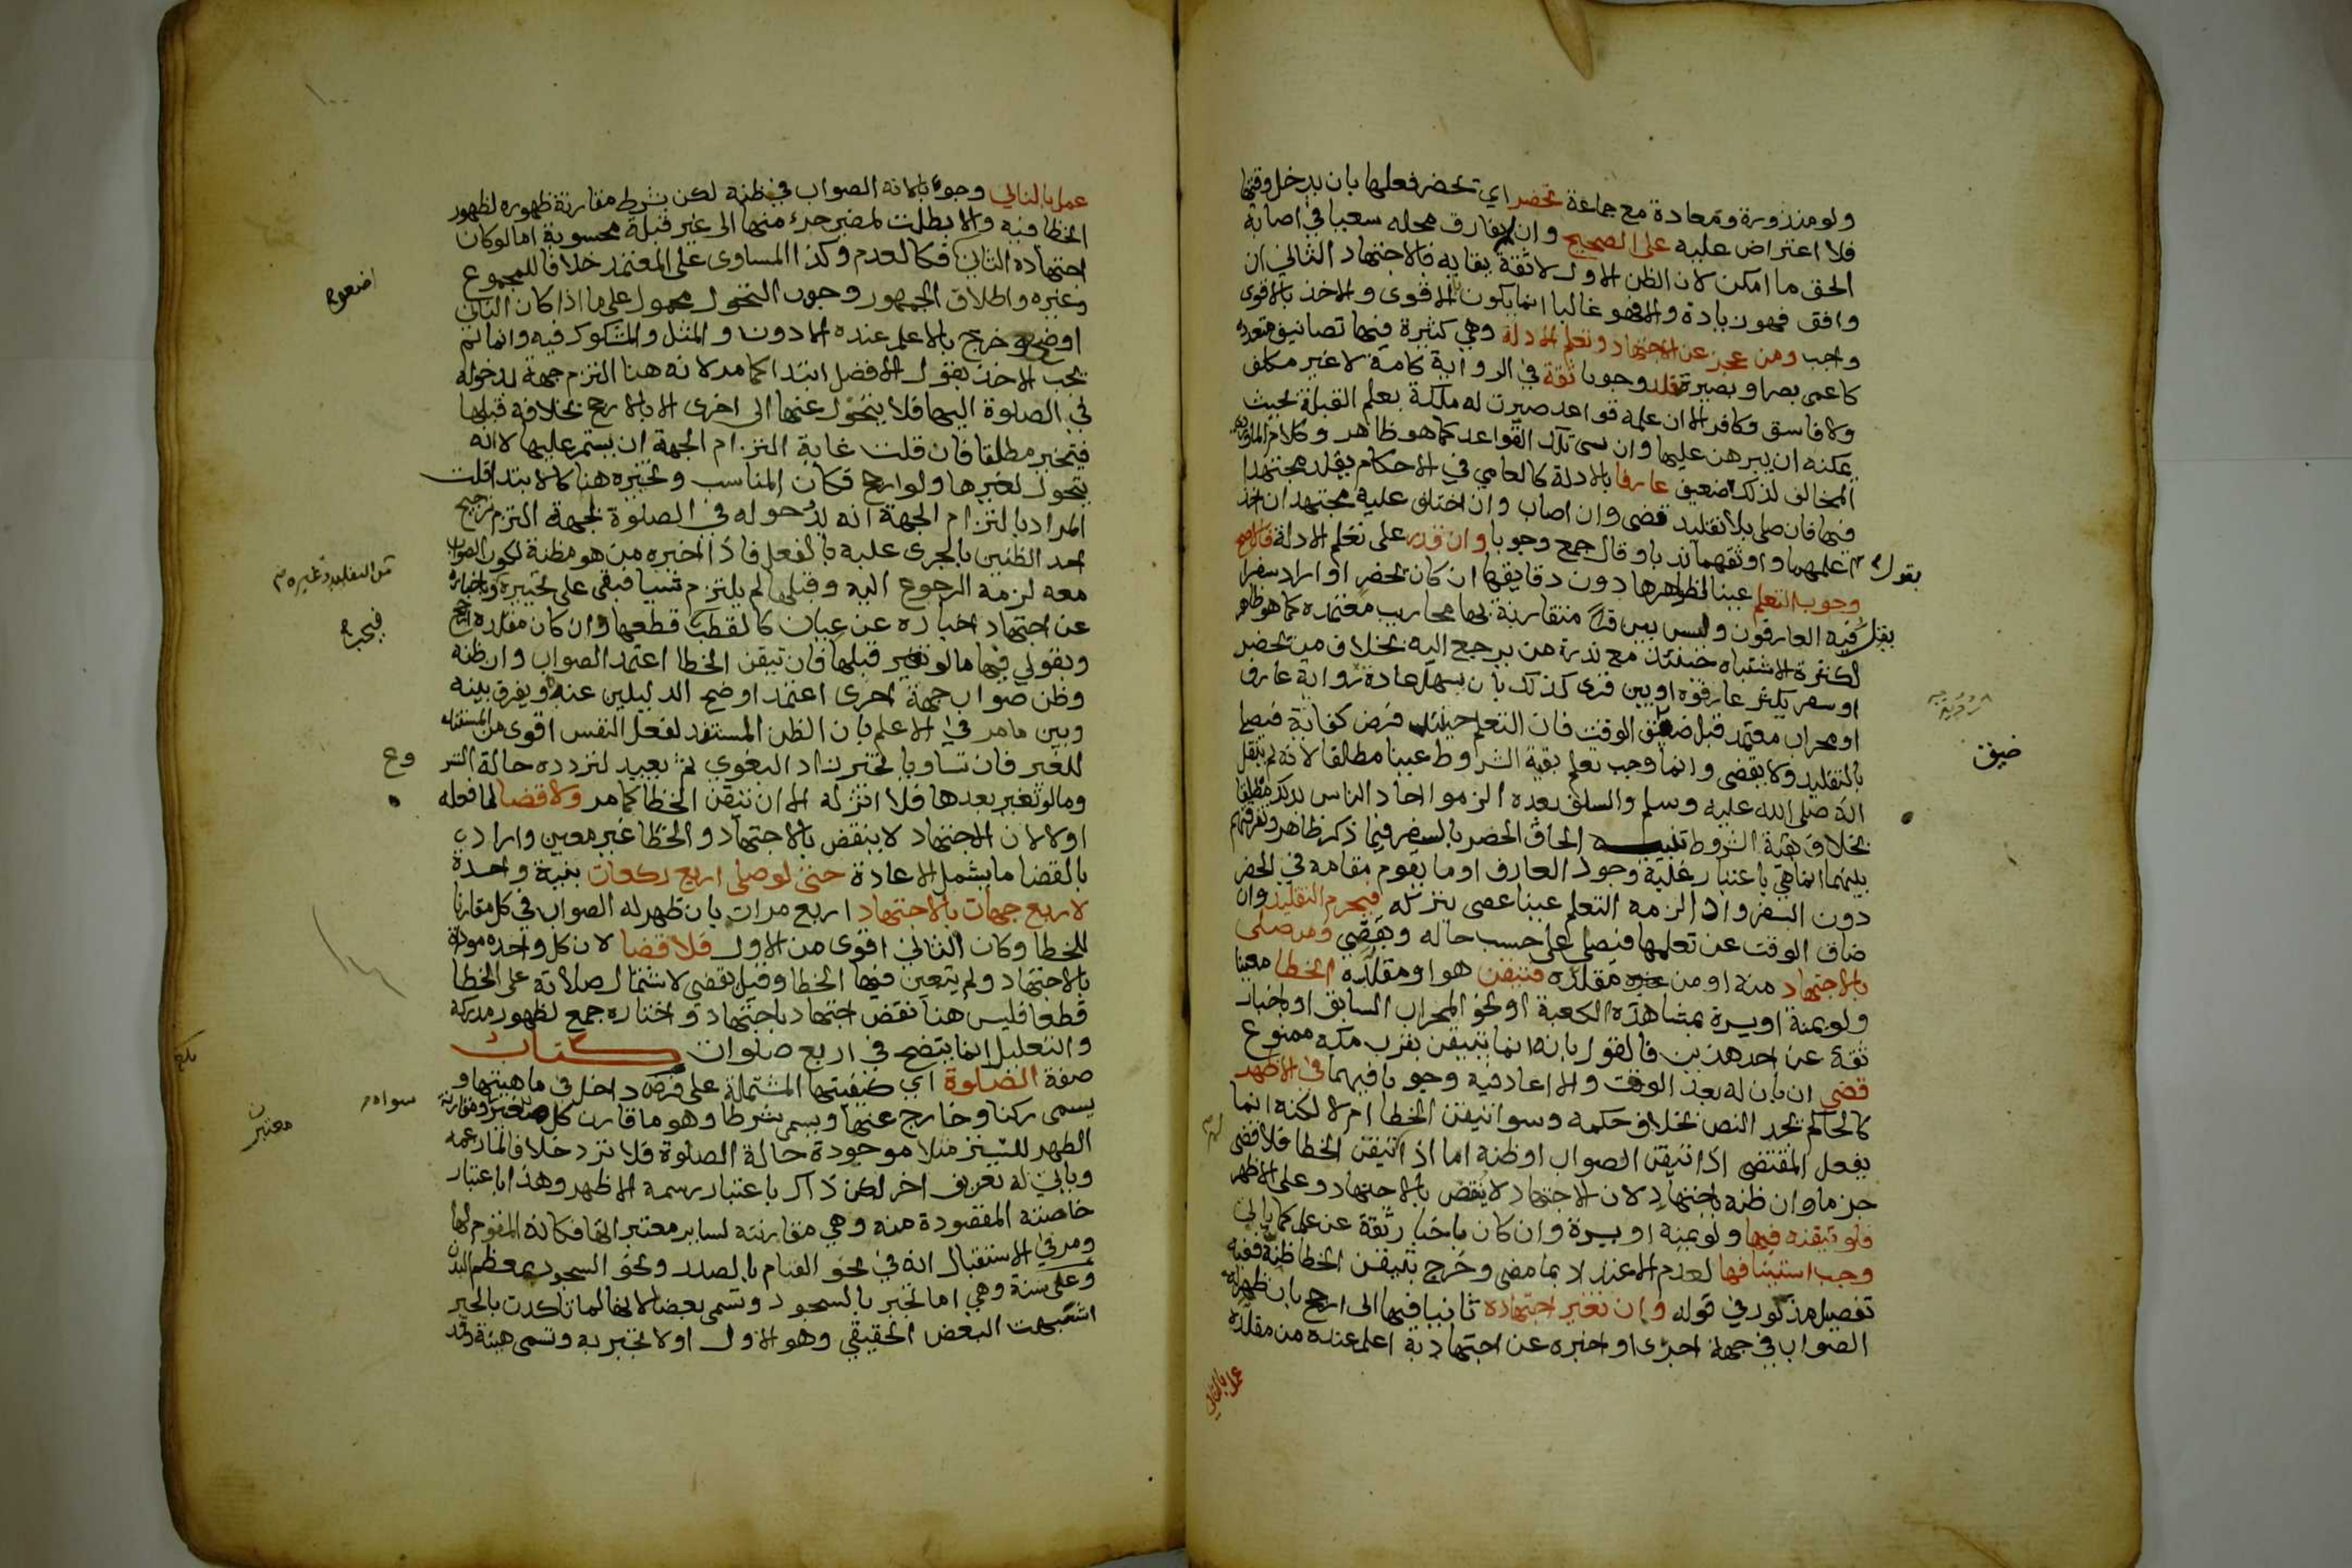 ولو منذورة ومعادة مع جماعة تحضر اي تحضر فعلها بان يدخل وقتها
فلا اعتراض عليه على الصحيح وان لم يفارق محله سعيا في اصابة
الحق ما امكن لان الظن الاول لا ثقة ببقايه فالاجتهاد الثاني ان
وافق فهو زيادة والا فهو غالبا انما يكون لاقوى والاخذ بالاقوى
واجب ومن عجز عن الاجتهاد وتعلم الادلة وهي كثيرة فيها تصانيف متعددة
كاعمى بصر او بصيرة قلد وجوبا ثقة في الرواية كامة لا غير مكلف
ولا فاسق وكافر الا ان علمه قواعد صيرت له ملكة بعلم القبلة بحيث
يمكنه ان يبرهن عليها وان نسى تلك القواعد كما هو ظاهر وكلام الماوردي
المخالف لذلك ضعيف عارفا بالادلة كالعامي في الاحكام يقلد مجتهدا
فيها فان صلى بلا تقليد قضى وان اصاب وان اختلف عليه مجتهدان اخذ
بقول اعلمهما واوثقهما ندبا وقال جمع وجوبا وان قدر على تعلم الادلة فالاصح
وجوب التعلم عينا لظواهرها دون دقايقها ان كان بحضر او اراد سفرا
يقل فيه العارفون وليس بين قرى متقاربة بها محاريب معتمدة كما هو ظاهر
لكثرة الاشتباه حينئذ مع ندرة من يرجع اليه بخلاف من بحضر
او سفر يكثر عارفوه او بين قرى كذلك بان يسهل عادة رواية عارف
او محراب معتمد قبل ضيق الوقت فان التعلم حينئذ فرض كفاية فيصلى
ضيق
بالتقليد ولا يقضي وانما وجب تعلم بقية الشروط عينا مطلقا لانه لم ينقل
انه صلى الله عليه وسلم والسلف بعده الزموا احاد الناس بذلك مطلقا
بخلاف بقية الشروط تنبيه الحاق الحضر بالسفر فيما ذكر ظاهر وتفرقتهم
بينهما انما هي باعتبار غلبة وجود العارف او ما يقوم مقامه في الحضر
دون السفر واذا لزمه التعلم عينا عصى بتركه فيحرم التقليد وان
ضاق الوقت عن تعلمها فيصلي على حسب حاله ويقضي ومن صلى
بالاجتهاد منه او من مقلده فتيقن هو او مقلده الخطا معينا
ولو يمنة او يسرة بمشاهدة الكعبة او نحو المحراب السابق او باخبار
ثقة عن احد هذين فالقول بانه انما يتيقن بقرب مكه ممنوع
قضى ان بان له بعد الوقت والا اعاد فيه وجوبا فيهما في الاظهر
كالحاكم يجد النص بخلاف حكمه وسوا تيقن الخطا ام لا لكنه انما
يفعل المقتضى اذا تيقن الصواب او ظنه اما اذا تيقن الخطا فلا قضى
جزما وان ظنه باجتهاد لان الاجتهاد لا ينقض بالاجتهاد وعلى الاظهر
فلو تيقنه فيها ولو يمنة او يسرة وان كان باخبار ثقة عن علم كما ياتي
وجب استينافها لعدم الاعتداد بما مضى وخرج بتيقن الخطا ظنه ففيه
تفصيل مذكور في قوله وان تغير اجتهاده ثانيا فيها الى ارجح بان ظهر له
الصواب في جهة اخرى او اخبره عن اجتهاد به اعلم عنده من مقلده
عمل بالثاني
عمل بالثاني وجوبا لانه الصواب في ظنه لكن بشرط مقارنة ظهوره لظهور
الخطا فيه والا بطلت لمضي جزء منها الى غير قبلة محسوبة اما لو كان
اجتهاده الثاني فكالعدم وكذا المساوى على المعتمد خلافا للمجموع
اضعف
وغيره واطلاق الجمهور وجوب التحول محمول على ما اذا كان الثاني
اوضح وخرج بالاعلم عنده الادون والمثل والمشكوك فيه وانما لم
يجب الاخذ بقول الافضل ابتدا كما مر لانه هنا التزم جهة بدخوله
في الصلوة اليها فلا يتحول عنها الى اخرى الا بالارجح بخلافه قبلها
فيتخير مطلقا فان قلت غاية التزام الجهة ان يستمر عليها لا انه
يتحول لغيرها ولو ارجح فكان المناسب وتخيره هنا كالابتدا قلت
المراد بالتزام الجهة انه بدخوله في الصلوة لجهة التزم ترجيح
احد الظنين بالجرى عليه بالفعل فاذا اخبره من هو مظنة لكون الصواب
معه لزمه الرجوع اليه وقبلها لم يلتزم شيا فبقى على تخييره وباخباره
عن اجتهاد اخباره عن عيان كالقطب قطعها وان كان مقلده ارجح
وبقولي فيها ما لو تغير قبلها فان تيقن الخطا اعتمد الصواب وان ظنه
وظن صواب جهة اخرى اعتمد اوضح الدليلين عنده ويفرق بينه
وبين ما مر في الاعلم بان الظن المستفد لفعل النفس اقوى من المستفاد
للغير فان تساويا تخير زاد البغوي ثم يعيد لتردده حالة الشر
وع
وما لو تغير بعدها فلا اثر له الا ان تيقن الخطا كما مر ولا قضا لما فعله
اولا لان الاجتهاد لا ينقض بالاجتهاد والخطا غير معين واراد
بالقضا ما يشمل الاعادة حتى لو صلى اربع ركعات بنية واحدة
لاربع جهات بالاجتهاد اربع مرات بان ظهر له الصواب في كل مقارنا
للخطا وكان الثاني اقوى من الاول فلا قضا لان كل واحده موداة
بالاجتهاد ولم يتعين فيها الخطا وقيل يقضي لاشتمال صلاته على الخطا
قطعا فليس هنا نقض اجتهاد باجتهاد واختاره جمع لظهور مدركه
والتعليل انما يتضح في اربع صلوات كتاب
صفة الصلوة اي كيفيتها المشتملة على فرض داخل في ماهيتها و
يسمى ركنا وخارج عنها ويسمى شرطا وهو ما قارن كل معتبر ومقارنة
سواه
معتبر
الطهر للستر مثلا موجودة حالة الصلوة فلا ترد خلافا لما زعمه
وياتي له تعريف اخر لكن ذاك باعتبار رسمه الاظهر وهذا باعتبار
خاصته المقصودة منه وهي مقارنته لساير معتبراتها فكانه المقوم لها
ومر في الاستقبال انه في نحو القيام بالصدر ونحو السجود بمعظم البدن
وعلى سنة وهي اما تجبر بالسجود وتسمى بعضا لانها لما تاكدت بالجبر
اشبهت البعض الحقيقي وهو الاول او لا تجبر به وتسمى هيئة وقد